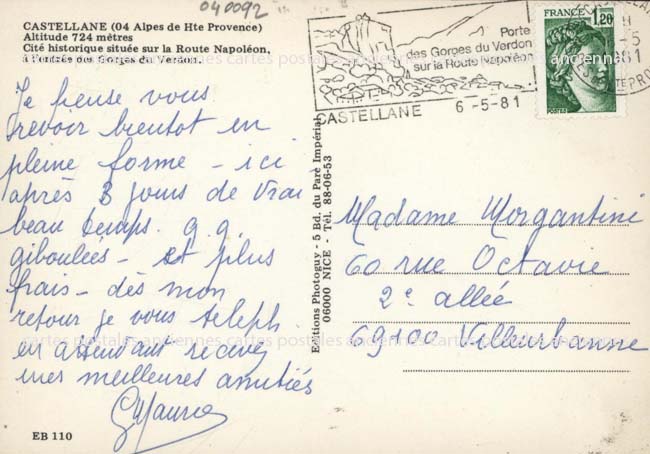 040092
CASTELLANE (04 Alpes de Hte Provence)
Altitude 724 mètres
Cité historique située sur la Route Napoléon,
à l'entrée des Gorges du Verdon.
Je pense vous
revoir bientot en
pleine forme - ici
après 3 jours de vrai
beau temps. q.q.
giboulées - et plus
frais - dès mon
retour je vous téléph.
en attendant recevez
mes meilleures amitiés
EB 110
Editions Photoguy - 5 Bd. du Parc Impérial
06000 NICE - Tél. 88-06-53
Porte
des Gorges du Verdon
sur la Route Napoléon
CASTELLANE 6-5-81
FRANCE
1,20
POSTES
Madame Morgantini
60 rue Octavie
2e allée
69100 Villeurbanne
cartes postales anciennes cartes postales anciennes cartes postales anciennes